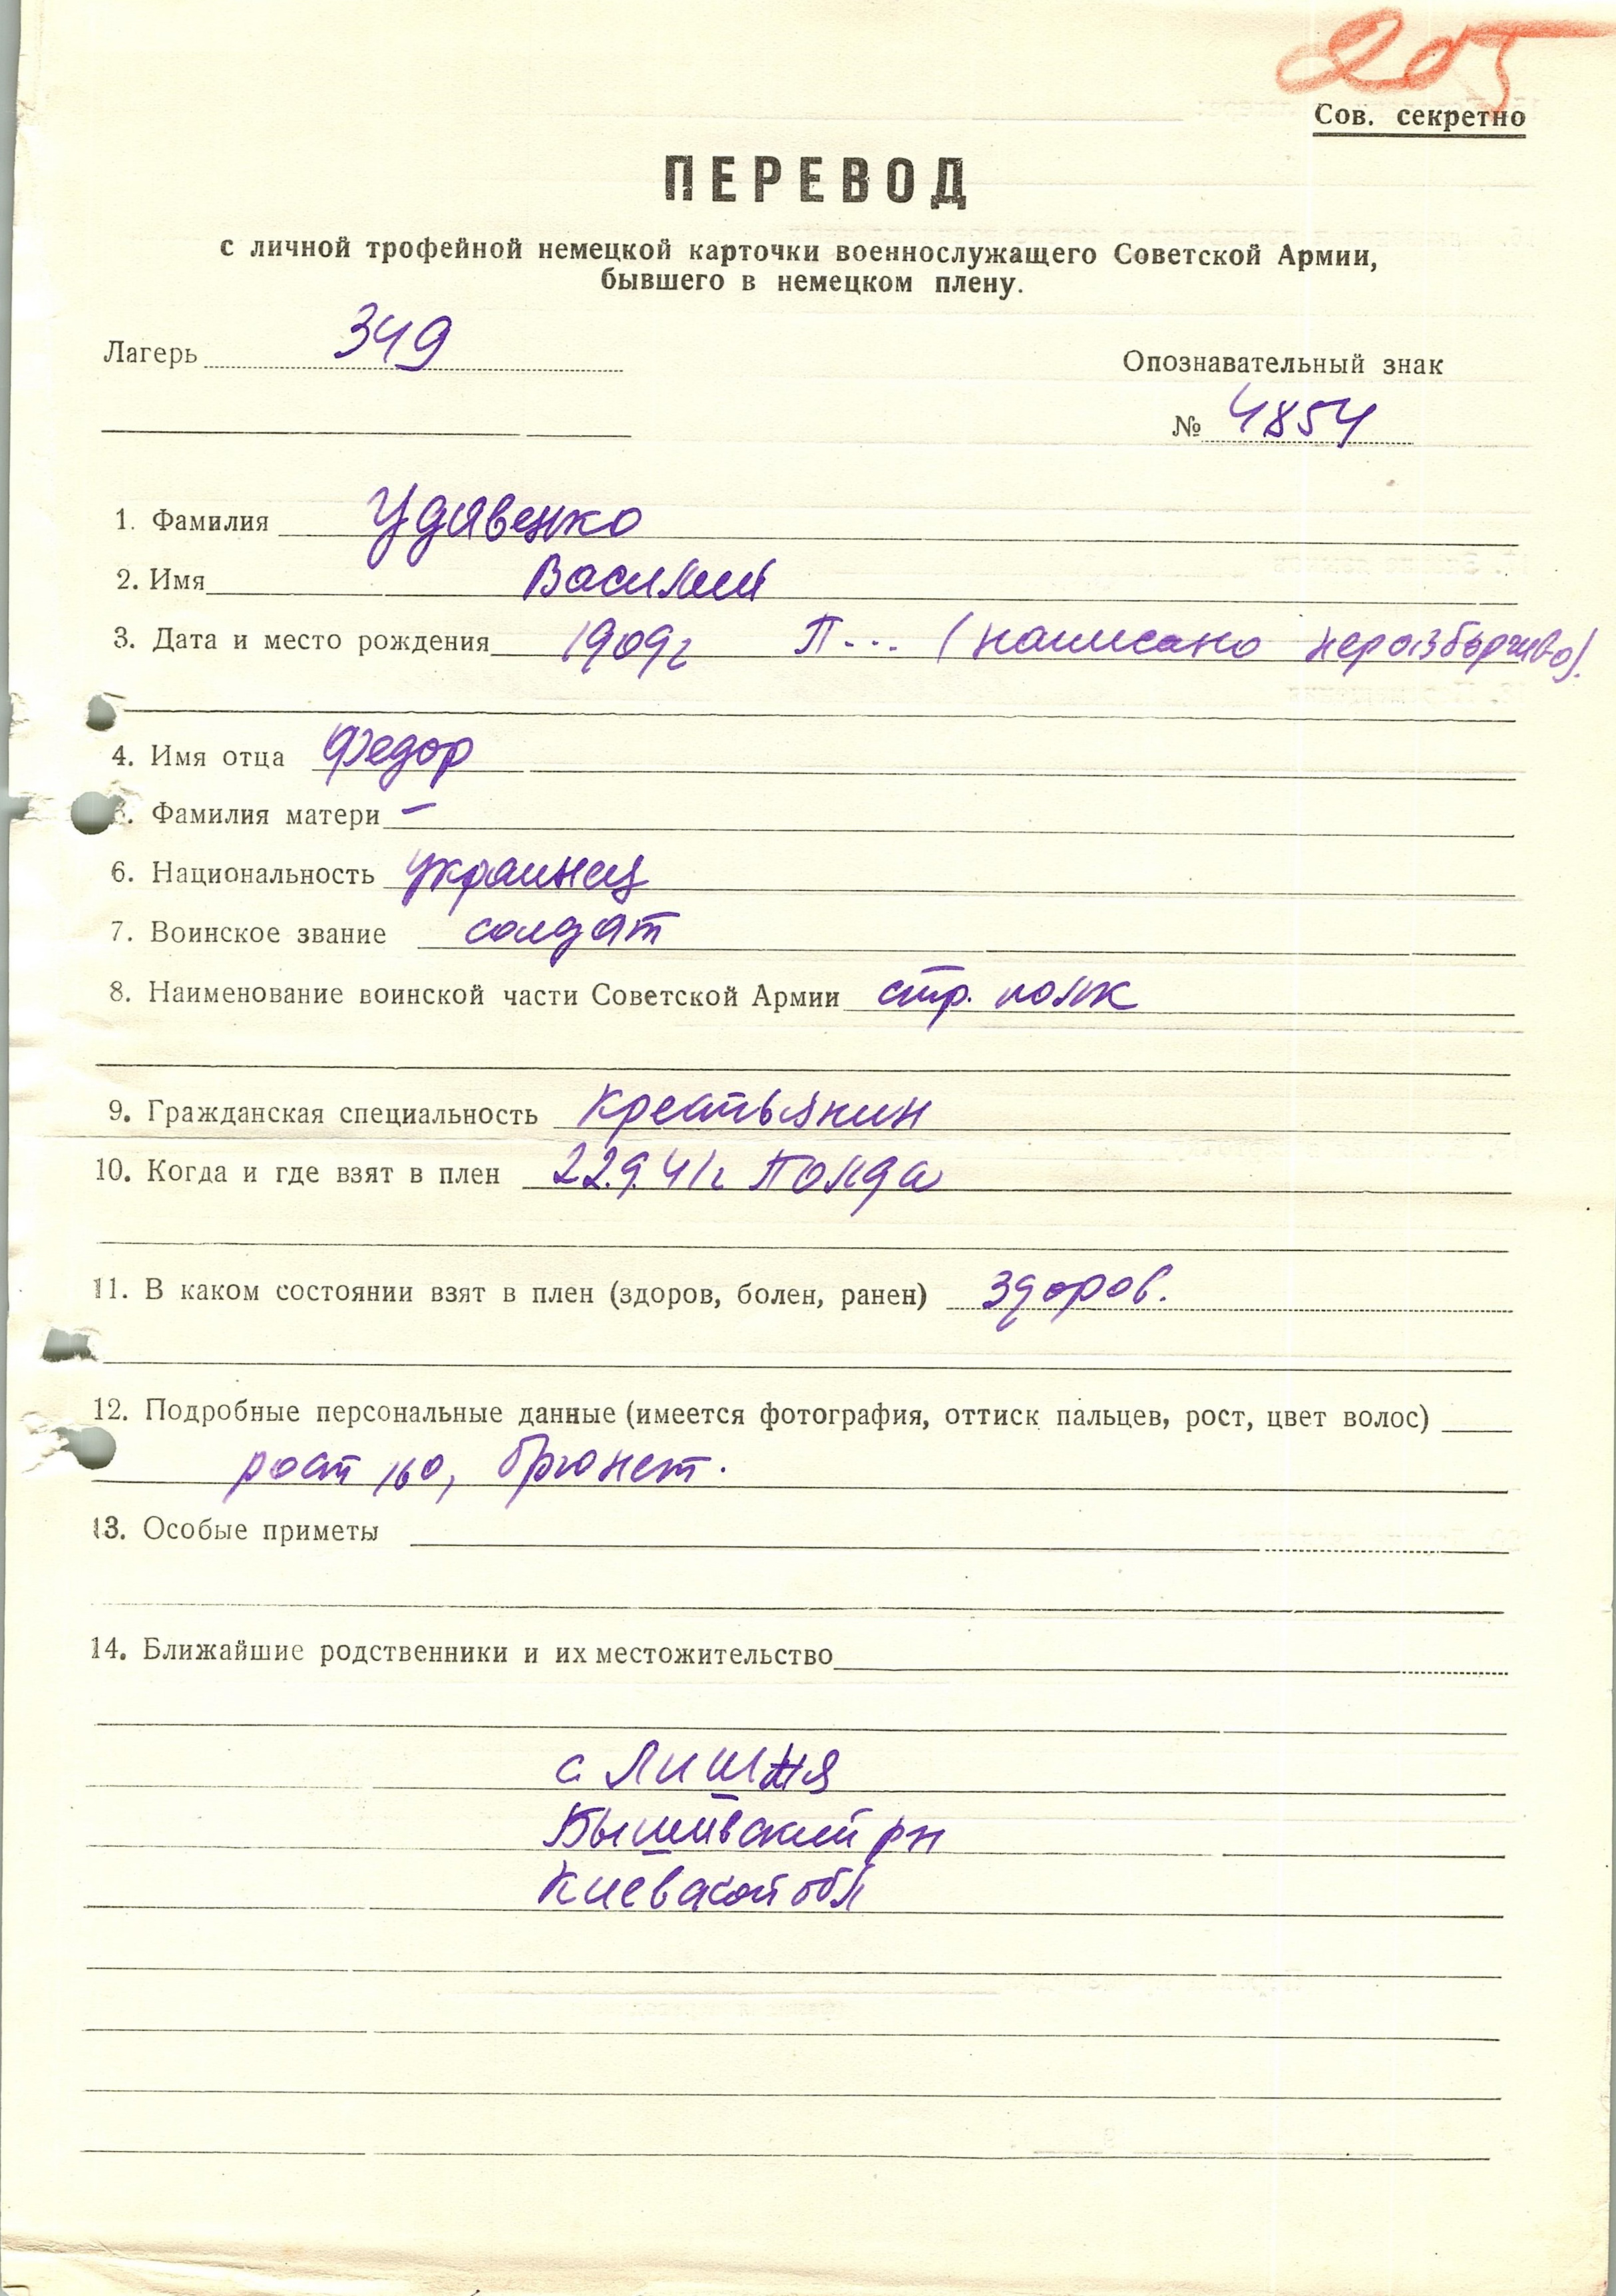 205
Сов. секретно
ПЕРЕВОД
с личной трофейной немецкой карточки военнослужащего Советской Армии,
бывшего в немецком плену.
Лагерь 349
Опознавательный знак
№ 4854
1. Фамилия Удавенко
2. Имя Василий
3. Дата и место рождения 1909г П... (написано неразборчиво).
4. Имя отца Федор
5. Фамилия матери –
6. Национальность украинец
7. Воинское звание солдат
8. Наименование воинской части Советской Армии стр. полк
9. Гражданская специальность крестьянин
10. Когда и где взят в плен 22.9.41г Полда
11. В каком состоянии взят в плен (здоров, болен, ранен) здоров.
12. Подробные персональные данные (имеется фотография, оттиск пальцев, рост, цвет волос)
рост 160, брюнет.
13. Особые приметы
14. Ближайшие родственники и их местожительство
с Лишня
Бышивский рн
Киевской обл